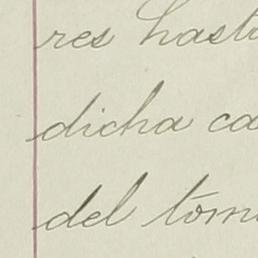 res hasta
dicha ca
del tom